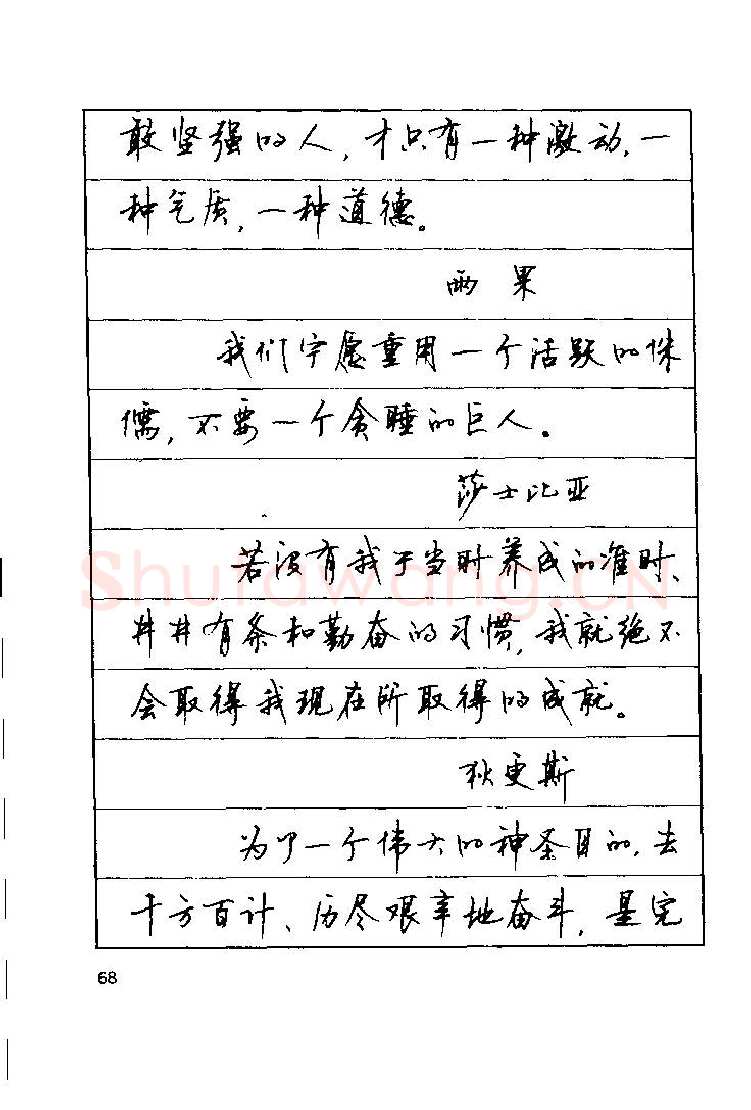 敢坚强的人，才只有一种激动，一
种气质，一种道德。
雨果
我们宁愿重用一个活跃的侏
儒，不要一个贪睡的巨人。
莎士比亚
若没有我于当时养成的准时、
井井有条和勤奋的习惯，我就绝不
会取得我现在所取得的成就。
狄更斯
为了一个伟大的神圣目的，去
千方百计、历尽艰辛地奋斗，是完
68
Shufawang.CN